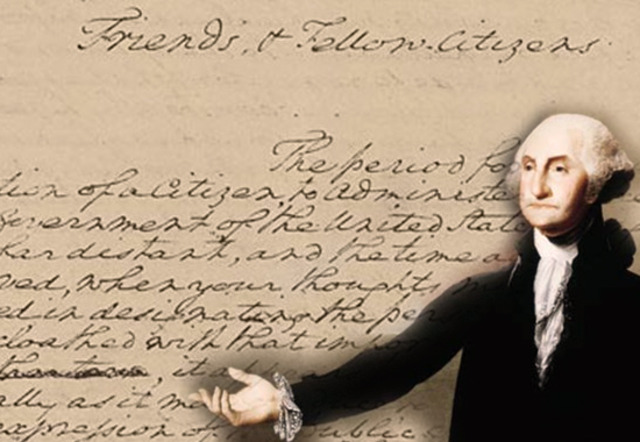 Friends, & Fellow-Citizens
The period fo
tion of a Citizen, to Administe
Government of the United State
far distant, and the time a
ved, when your thoughts
ed in designating the per
cloathed with that impo
it a
ally as it m
expression of public